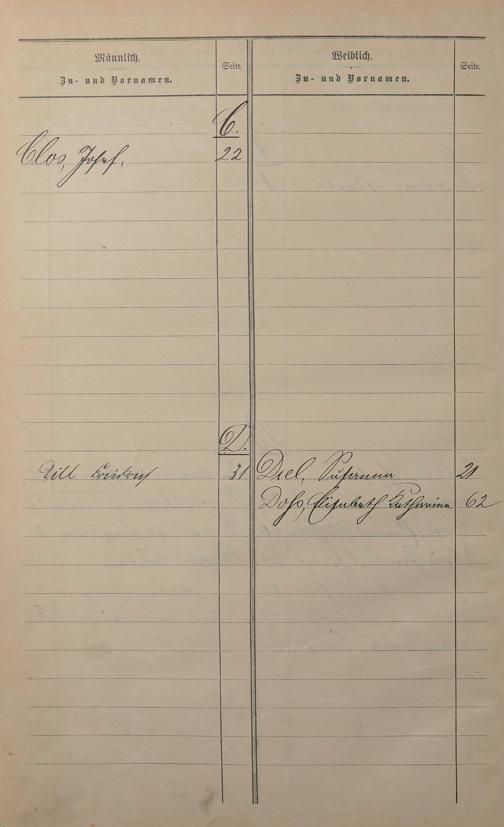 Männlich.
Zu- und Vornamen.
Seite.
Weiblich.
Zu- und Vornamen.
Seite.
C.
Clos, Josef, 22
D.
Dill Friedrich 31
Diel, Susanna 21
Dohs, Elisabeth Katharina 62